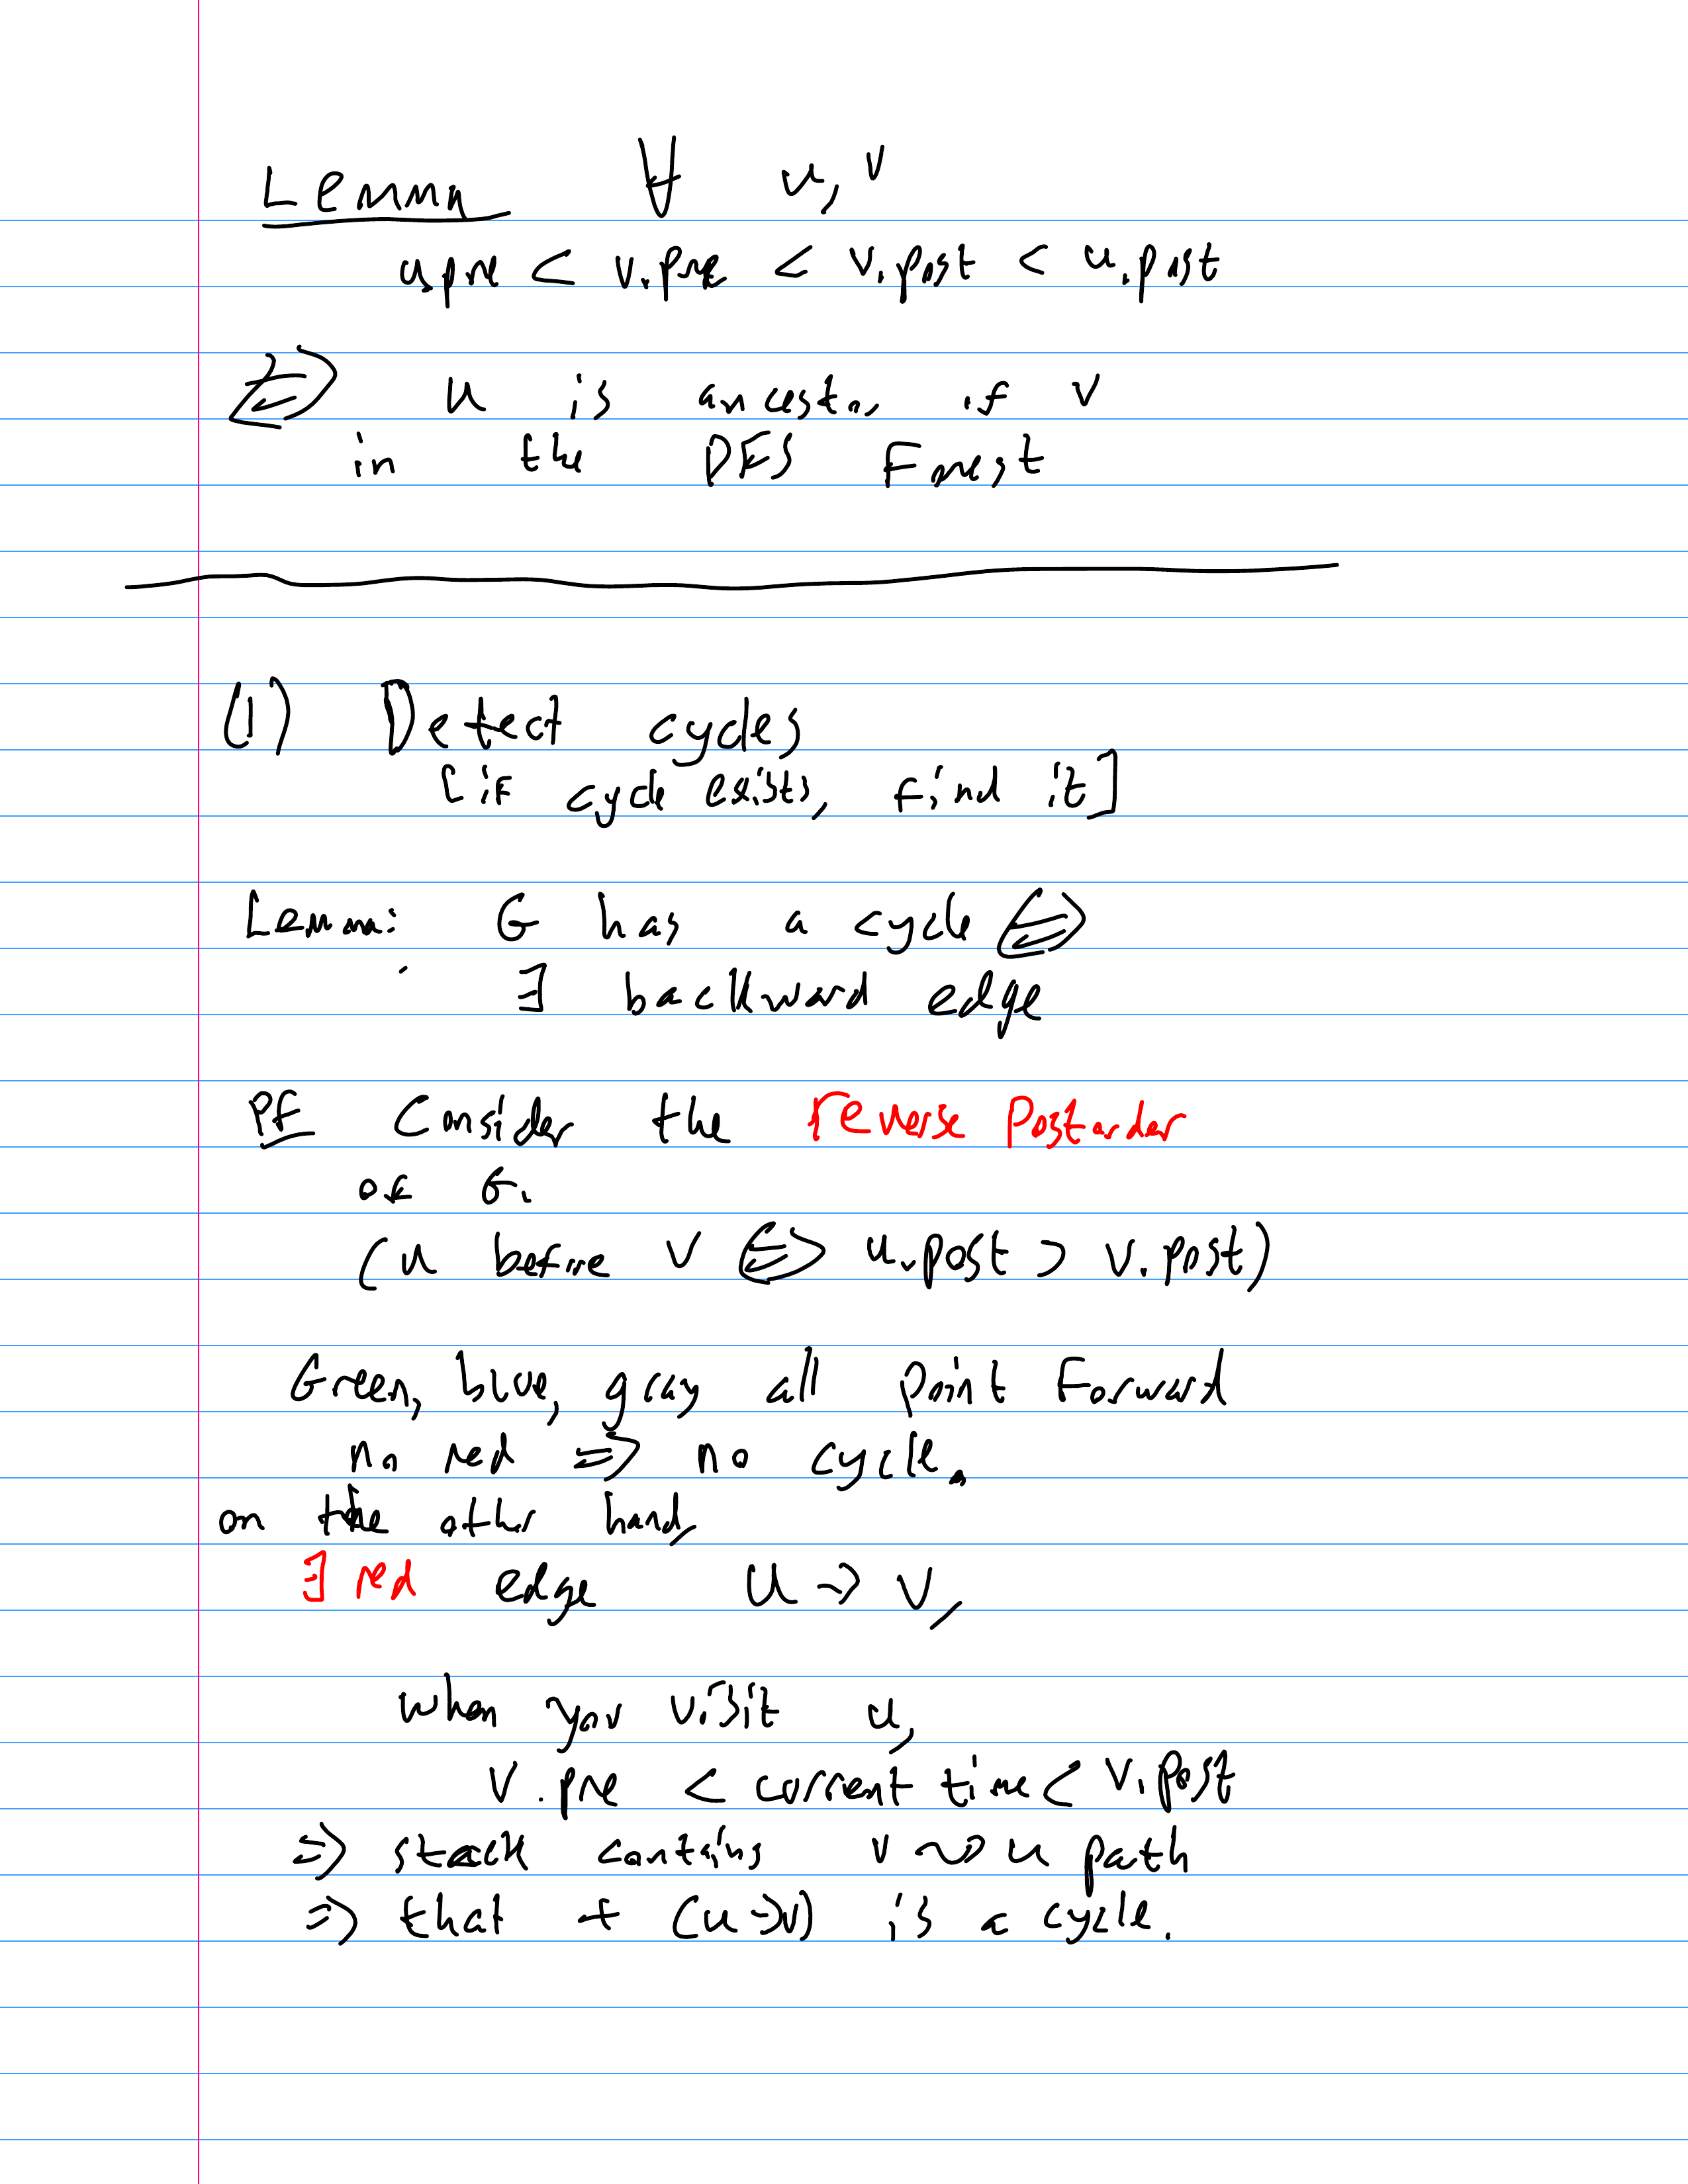 Lemma ∀ u, v
u.pre < v.pre < v.post < u.post
⟺ u is ancestor of v
in the DFS Forest
(1) Detect cycles
[if cycle exists, find it]
Lemma: G has a cycle ⟺
∃ backward edge
Pf Consider the reverse postorder
of G.
(u before v ⟺ u.post > v.post)
Green, blue, gray all point Forward
no red ⇒ no cycle.
on the other hand,
∃ red edge u → v,
when you visit u,
v.pre < current time < v.post
⇒ stack contains v ⇝ u path
⇒ that + (u→v) is a cycle.